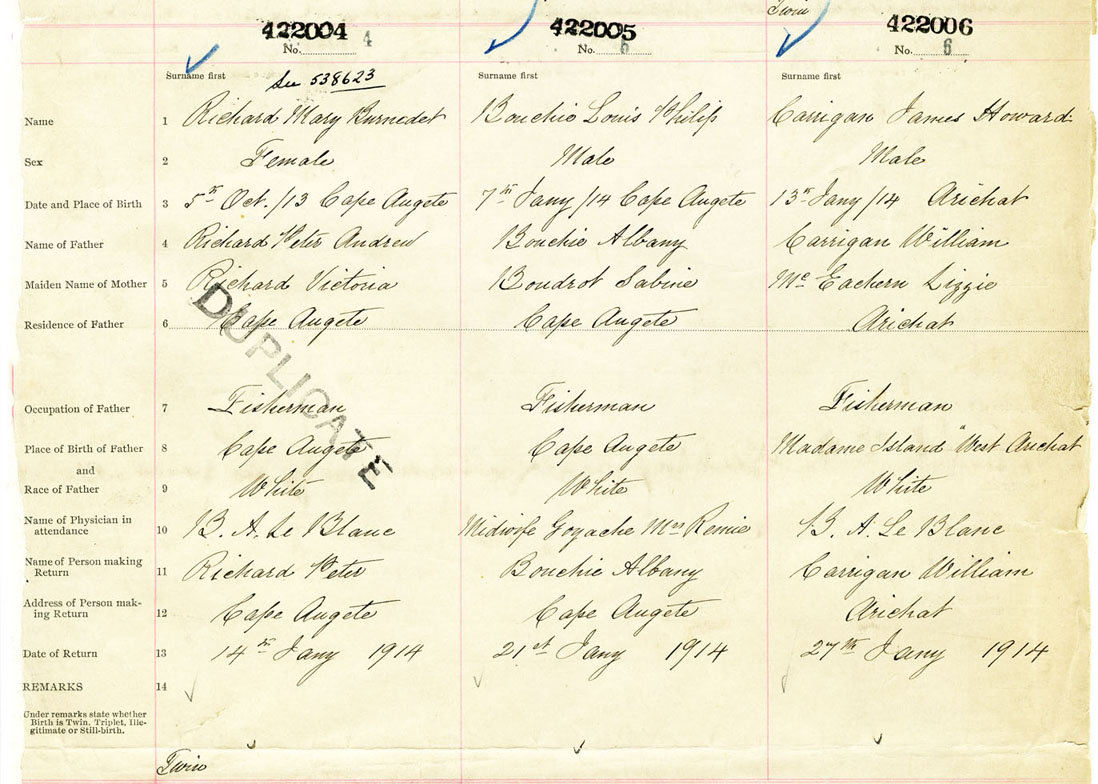 Twin
422004 422005 422006
No. 4 No. 5 No. 6
Surname first Surname first Surname first
See 538623
Name 1 Richard Mary Burnedet Bouchie Louis Philip Carrigan James Howard
Sex 2 Female Male Male
Date and Place of Birth 3 5th Oct./13 Cape Augete 7th Jany/14 Cape Augete 13th Jany/14 Arichat
Name of Father 4 Richard Peter Andrew Bouchie Albany Carrigan William
Maiden Name of Mother 5 Richard Victoria Boudrot Sabine McEachern Lizzie
Residence of Father 6 Cape Augete Cape Augete Arichat
DUPLICATE
Occupation of Father 7 Fisherman Fisherman Fisherman
Place of Birth of Father 8 Cape Augete Cape Augete Madame Island "West Arichat
and
Race of Father 9 White White White
Name of Physician in
attendance 10 B. A. Le Blanc Midwife Goyache Mrs Remie B. A. Le Blanc
Name of Person making
Return 11 Richard Peter Bouchie Albany Carrigan William
Address of Person mak-
ing Return 12 Cape Augete Cape Augete Arichat
Date of Return 13 14th Jany 1914 21st Jany 1914 27th Jany 1914
REMARKS 14
Under remarks state whether
Birth is Twin, Triplet, Ille-
gitimate or Still-birth.
Twin